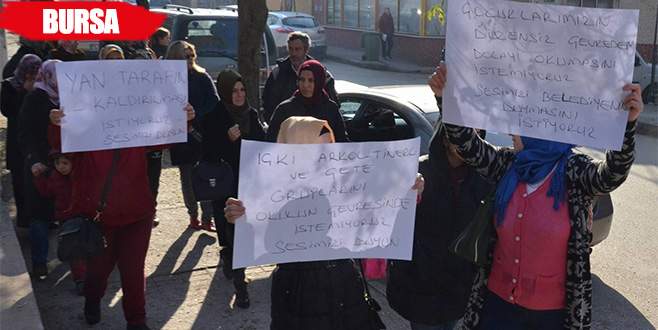 BURSA
YAN TARAFIN
KALDIRILMASI
İSTİYORUZ
SESİMİZİ
İÇKİ ALKOL TİNERCİ
VE ÇETE
GRUPLARINI
OKULUN ÇEVRESİNDE
İSTEMİYORUZ
SESİMİZİ DUYUN
ÇOCUKLARIMIZIN
DÜZENSİZ ÇEVREDEN
DOLAYI OKUMASINI
İSTEMİYORUZ
SESİMİZİ BELEDİYENİN
DUYMASINI
İSTİYORUZ